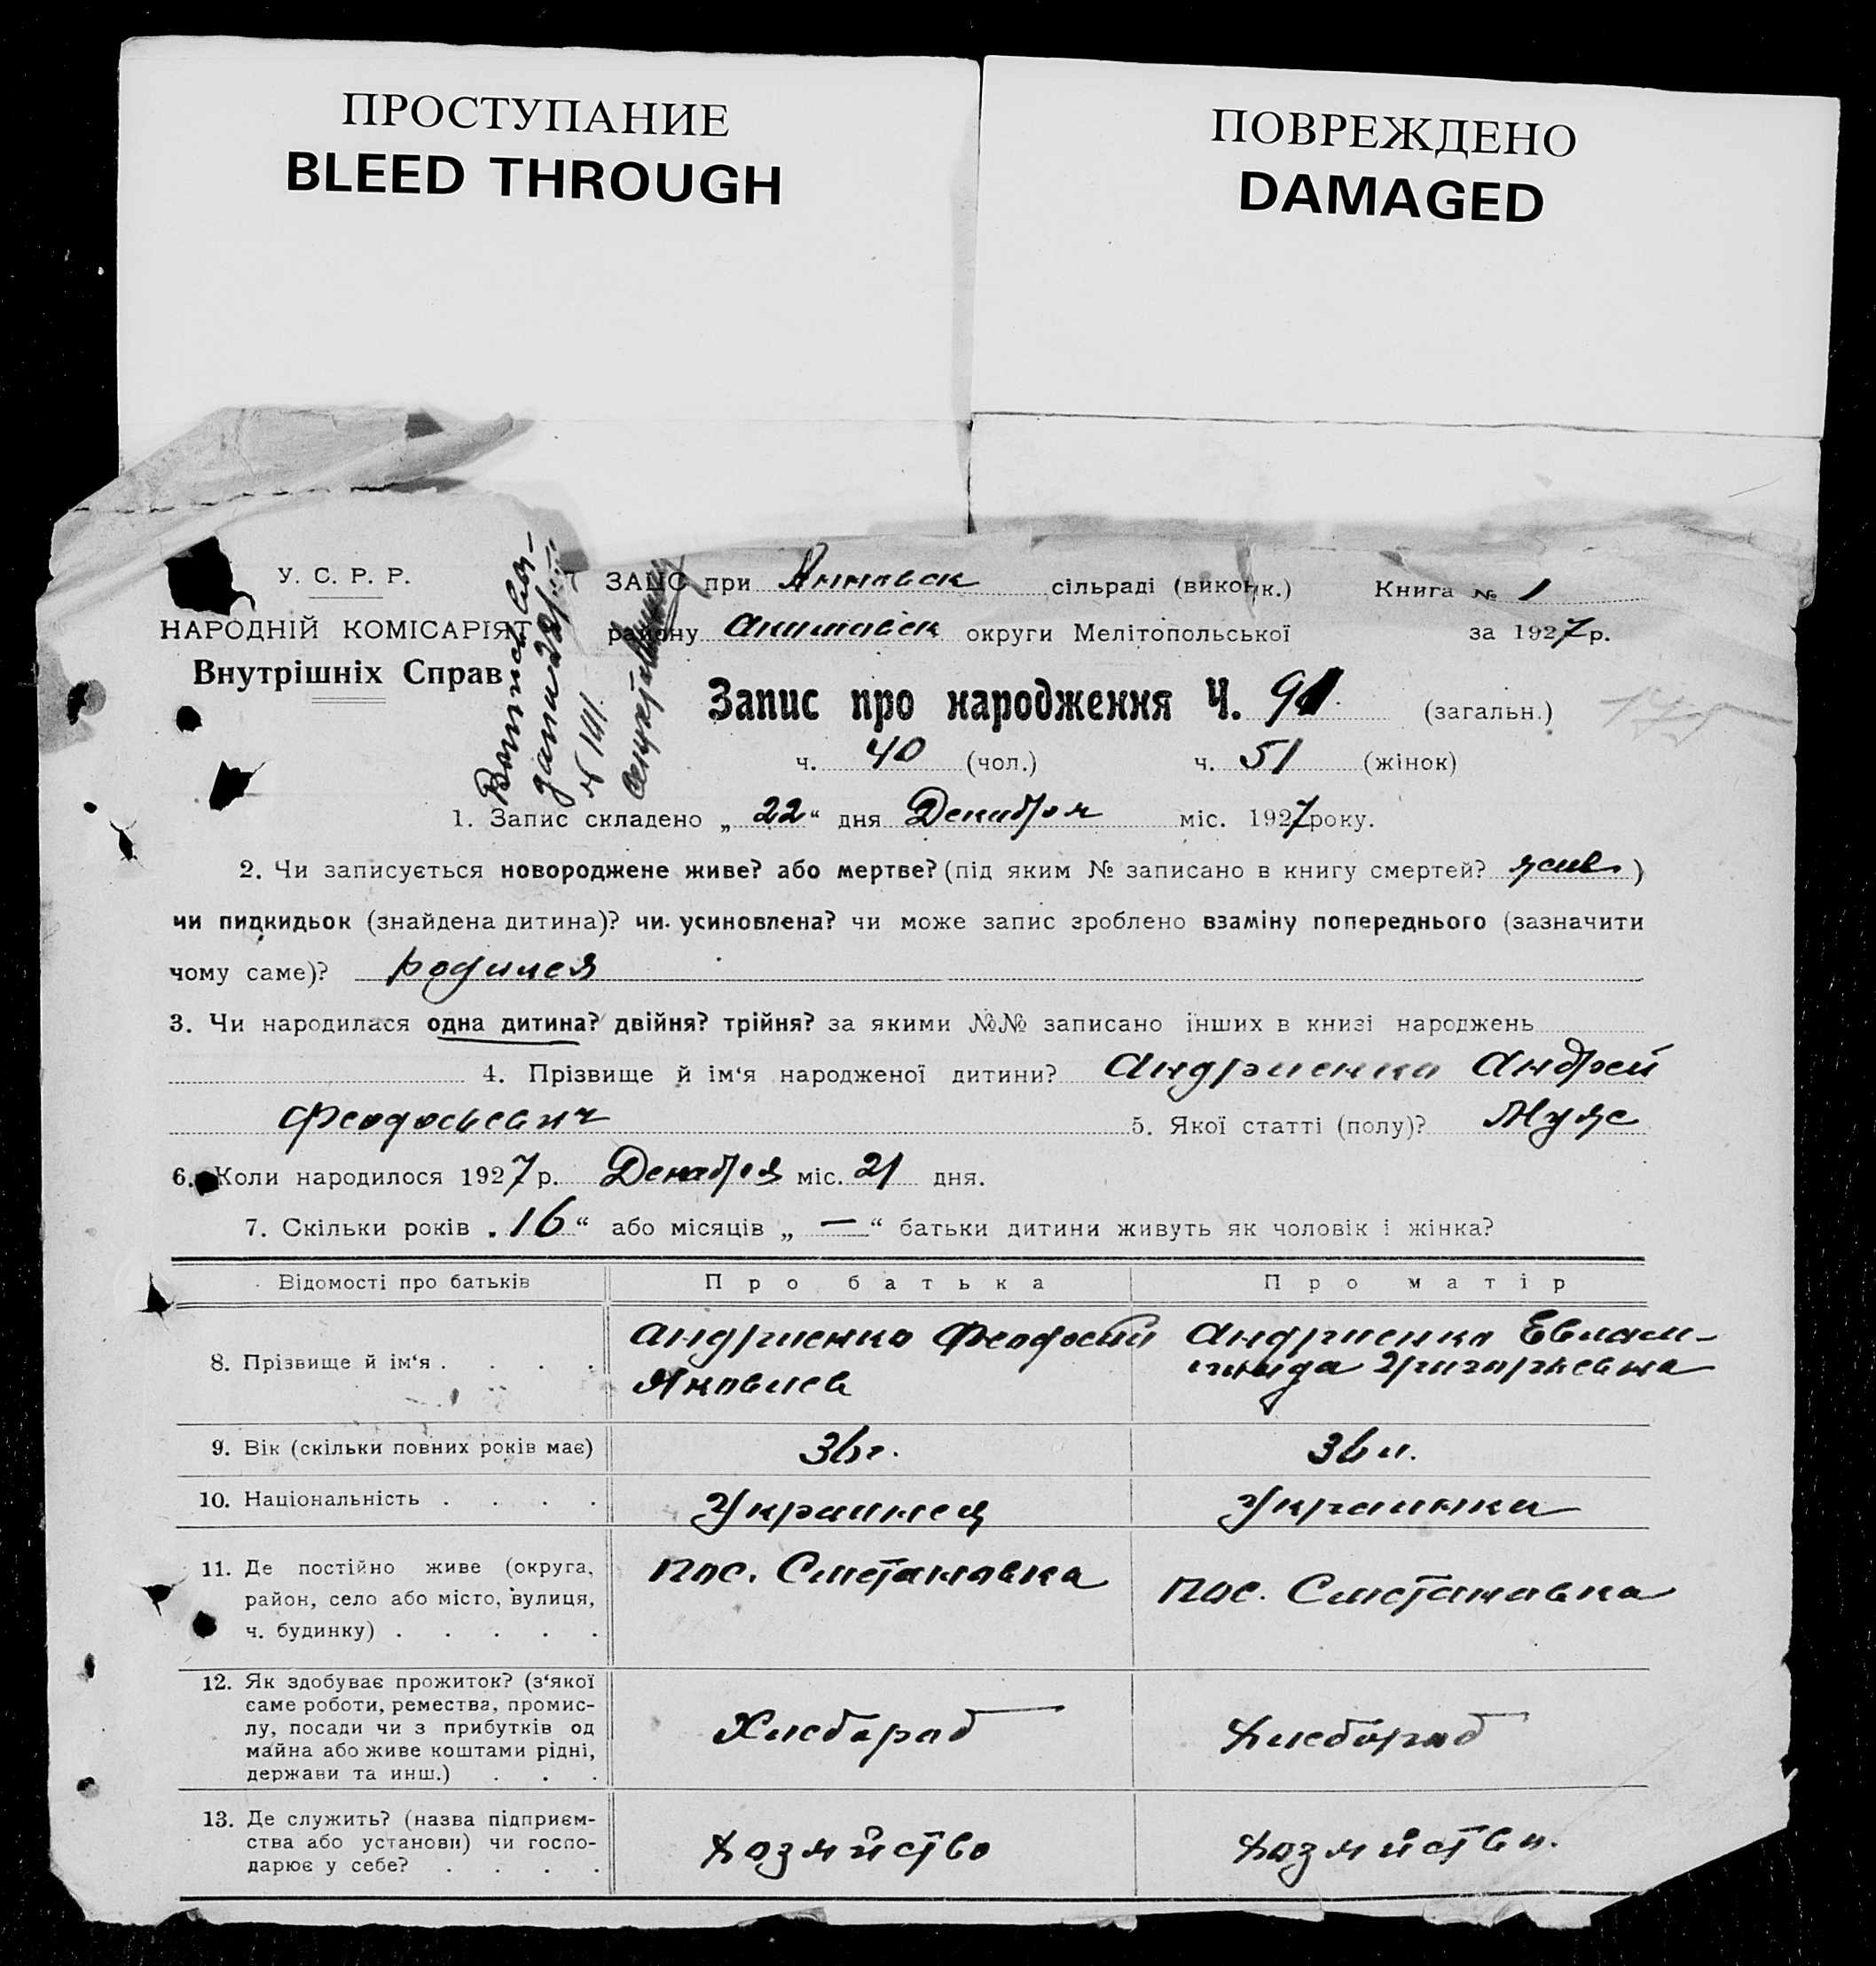 ПРОСТУПАНИЕ
BLEED THROUGH
ПОВРЕЖДЕНО
DAMAGED
У. С. Р. Р.
НАРОДНІЙ КОМІСАРІЯТ
Внутрішніх Справ
ЗАЦС при Анновск сільраді (виконк.) Книга № 1
району Акимовск округи Мелітопольської за 1927 р.
Запис про народження Ч. 91 (загальн.)
ч. 40 (чол.) ч. 51 (жінок)
1. Запис складено „ 22 “ дня Декабря міс. 1927 року.
2. Чи записується новороджене живе? або мертве? (під яким № записано в книгу смертей? жив )
чи пидкидьок (знайдена дитина)? чи усиновлена? чи може запис зроблено взаміну попереднього (зазначити
чому саме)? родился
3. Чи народилася одна дитина? двійня? трійня? за якими №№ записано інших в книзі народжень
4. Прізвище й ім‘я народженої дитини? Андриенко Андрей
Феодосьевич 5. Якої статті (полу)? Муж
6. Коли народилося 1927 р. Декабря міс. 21 дня.
7. Скільки років „ 16 “ або місяців „ — “ батьки дитини живуть як чоловік і жінка?
Відомості про батьків Про батька Про матір
8. Прізвище й ім‘я . . . . Андриенко Феодосий Андриенко Евлам-
Яковлев пиида Григорьевна
9. Вік (скільки повних років має) 36 г. 36 л.
10. Національність . . . . Украинец Украинка
11. Де постійно живе (округа, пос. Сметановка пос. Сметановка
район, село або місто, вулиця,
ч. будинку) . . . . .
12. Як здобуває прожиток? (з‘якої
саме роботи, ремества, промис-
лу, посади чи з прибутків од Хлебороб Хлебороб
майна або живе коштами рідні,
держави та инш.) . . .
13. Де служить? (назва підприєм-
ства або установи) чи госпо- Хозяйство Хозяйство.
дарює у себе? . . . .